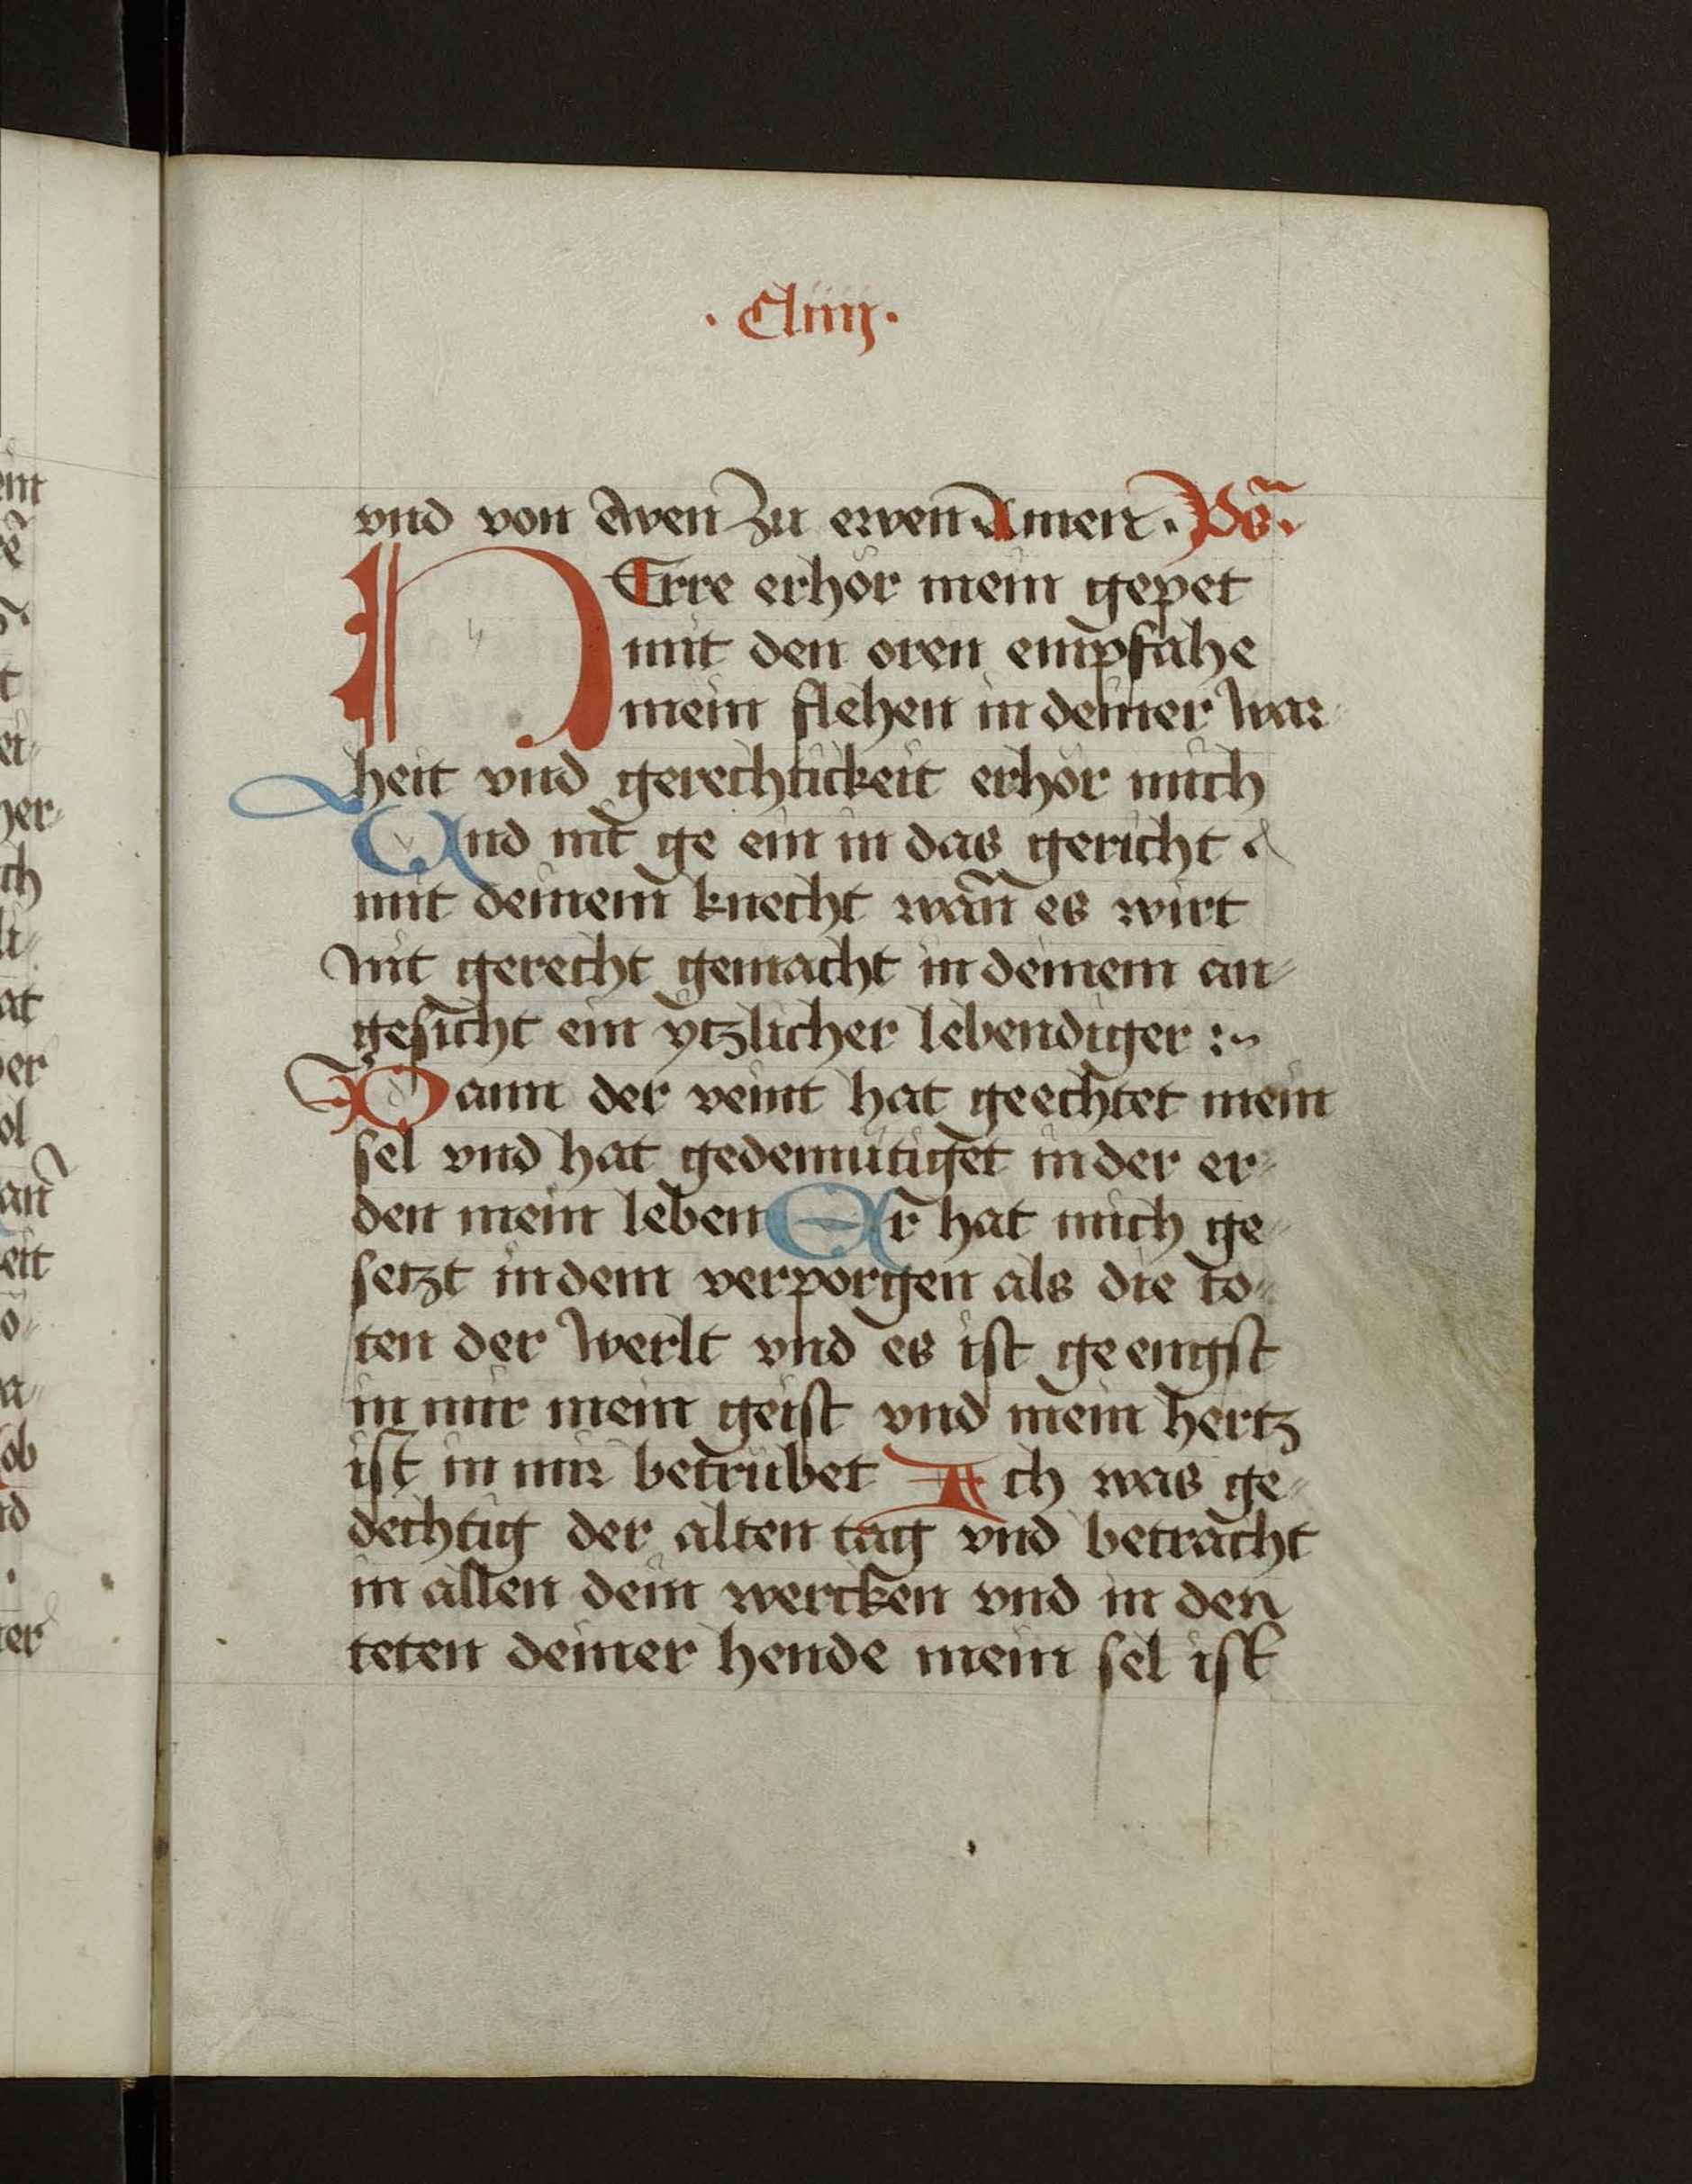 · Cliiij ·
vnd von ewen zu ewen Amen · Ps̄ ·
HErre erhör mein gepet
mit den oren empfahe
mein flehen in deiner war-
heit vnd gerechtickeit erhör mich
Vnd nit ge ein in das gericht
mit deinem knecht wan̄ es wirt
nit gerecht gemacht in deinem an-
gesicht ein ytzlicher lebendiger :~
Wann der veint hat geechtet mein
sel vnd hat gedemütiget in der er-
den mein leben Er hat mich ge-
setzt in dem verporgen als die to-
ten der werlt vnd es ist geengst
in mir mein geist vnd mein hertz
ist in mir betrübet Ich was ge-
dechtig der alten tag vnd betracht
in allen dein wercken vnd in den
teten deiner hende mein sel ist